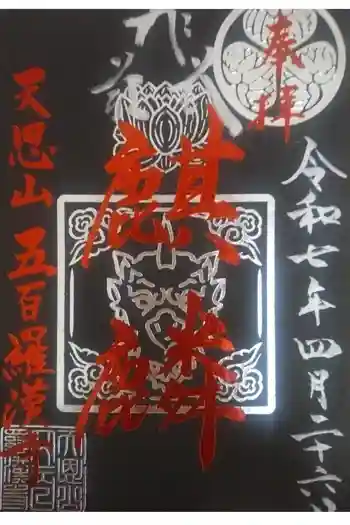 奉拝
令和七年四月二十六日
麒麟
天恩山 五百羅漢寺